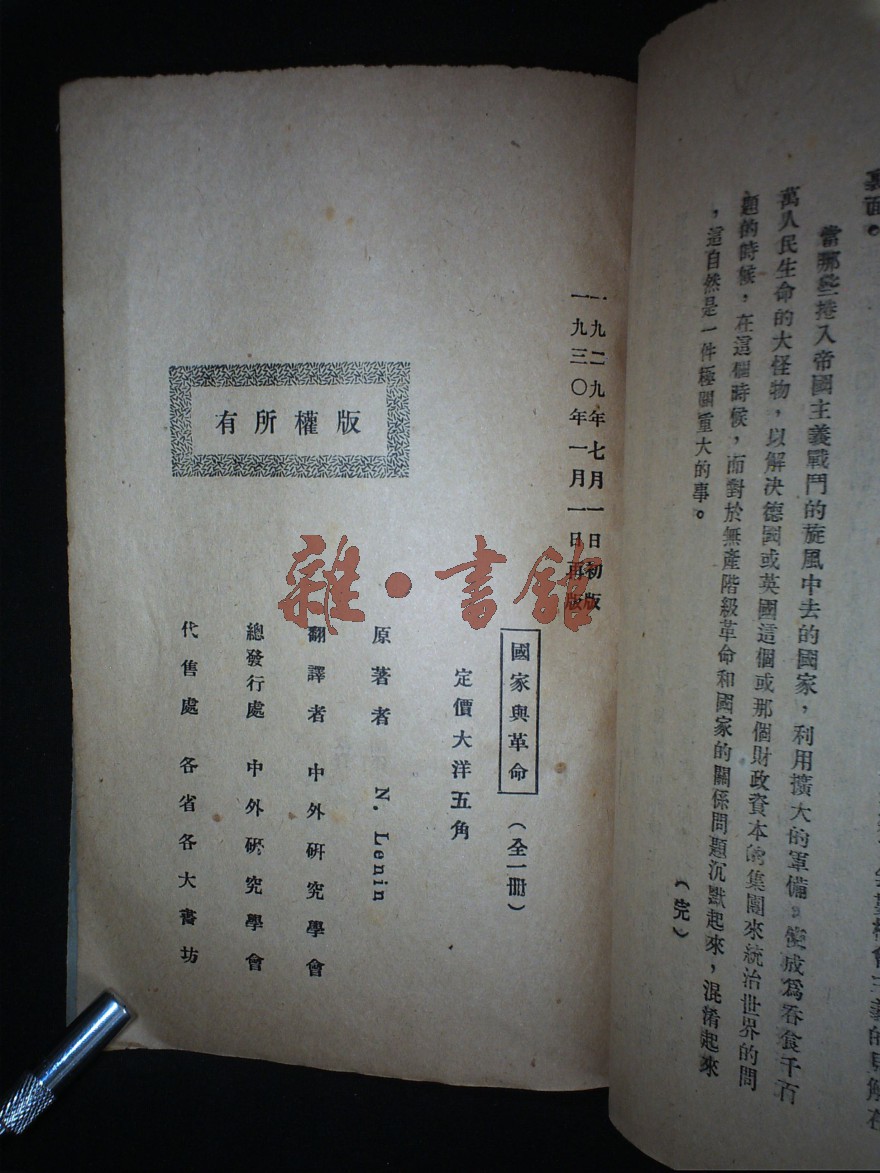 裏面。
當那些捲入帝國主義戰鬥的旋風中去的國家，利用擴大的軍備，變成爲吞食千百
萬人民生命的大怪物，以解決德國或英國這個或那個財政資本的集團來統治世界的問
題的時候，在這個時候，而對於無產階級革命和國家的關係問題沉默起來，混淆起來
，這自然是一件極關重大的事。
（完）
一九二九年七月一日初版
一九三〇年一月一日再版
國家與革命（全一冊）
定價大洋五角
原著者 N. Lenin
翻譯者 中外硏究學會
總發行處 中外硏究學會
代售處 各省各大書坊
有所權版
雜·書館